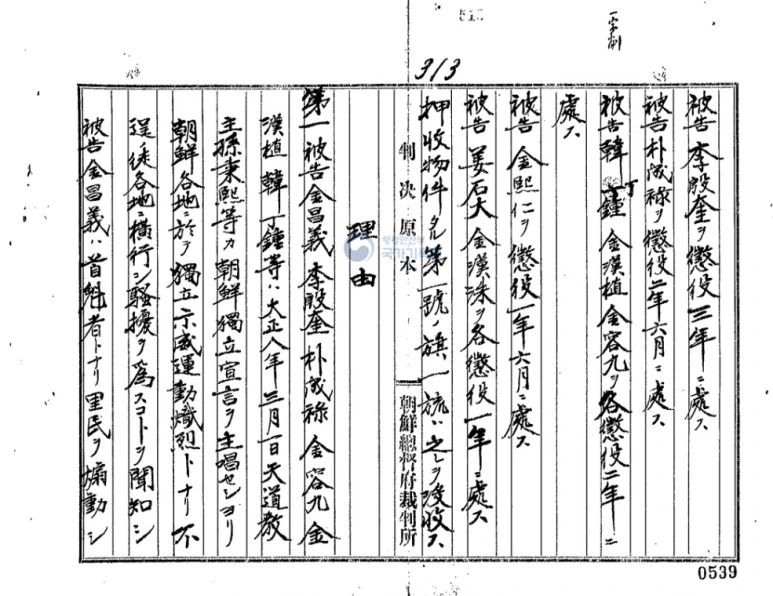 313
被告李殷奎ヲ懲役三年ニ處ス
被告朴成祿ヲ懲役二年六月ニ處ス
被告韓丁鍾金漢植金容九ヲ各懲役二年ニ
處ス
被告金熙仁ヲ懲役一年六月ニ處ス
被告姜石大金漢洙ヲ各懲役一年ニ處ス
押收物件中第一號ノ旗一旒ハ之レヲ沒收ス
判決原本
朝鮮總督府裁判所
理由
第一被告金昌義李殷奎朴成祿金容九金
漢植韓丁鍾等ハ大正八年三月一日天道教
主孫秉熙等カ朝鮮獨立宣言ヲ主唱セシヨリ
朝鮮各地ニ於テ獨立示威運動熾烈トナリ不
逞徒各地ニ橫行シ騷擾ヲ爲スコトヲ聞知シ
被告金昌義ハ首魁者トナリ里民ヲ煽動シ
0539